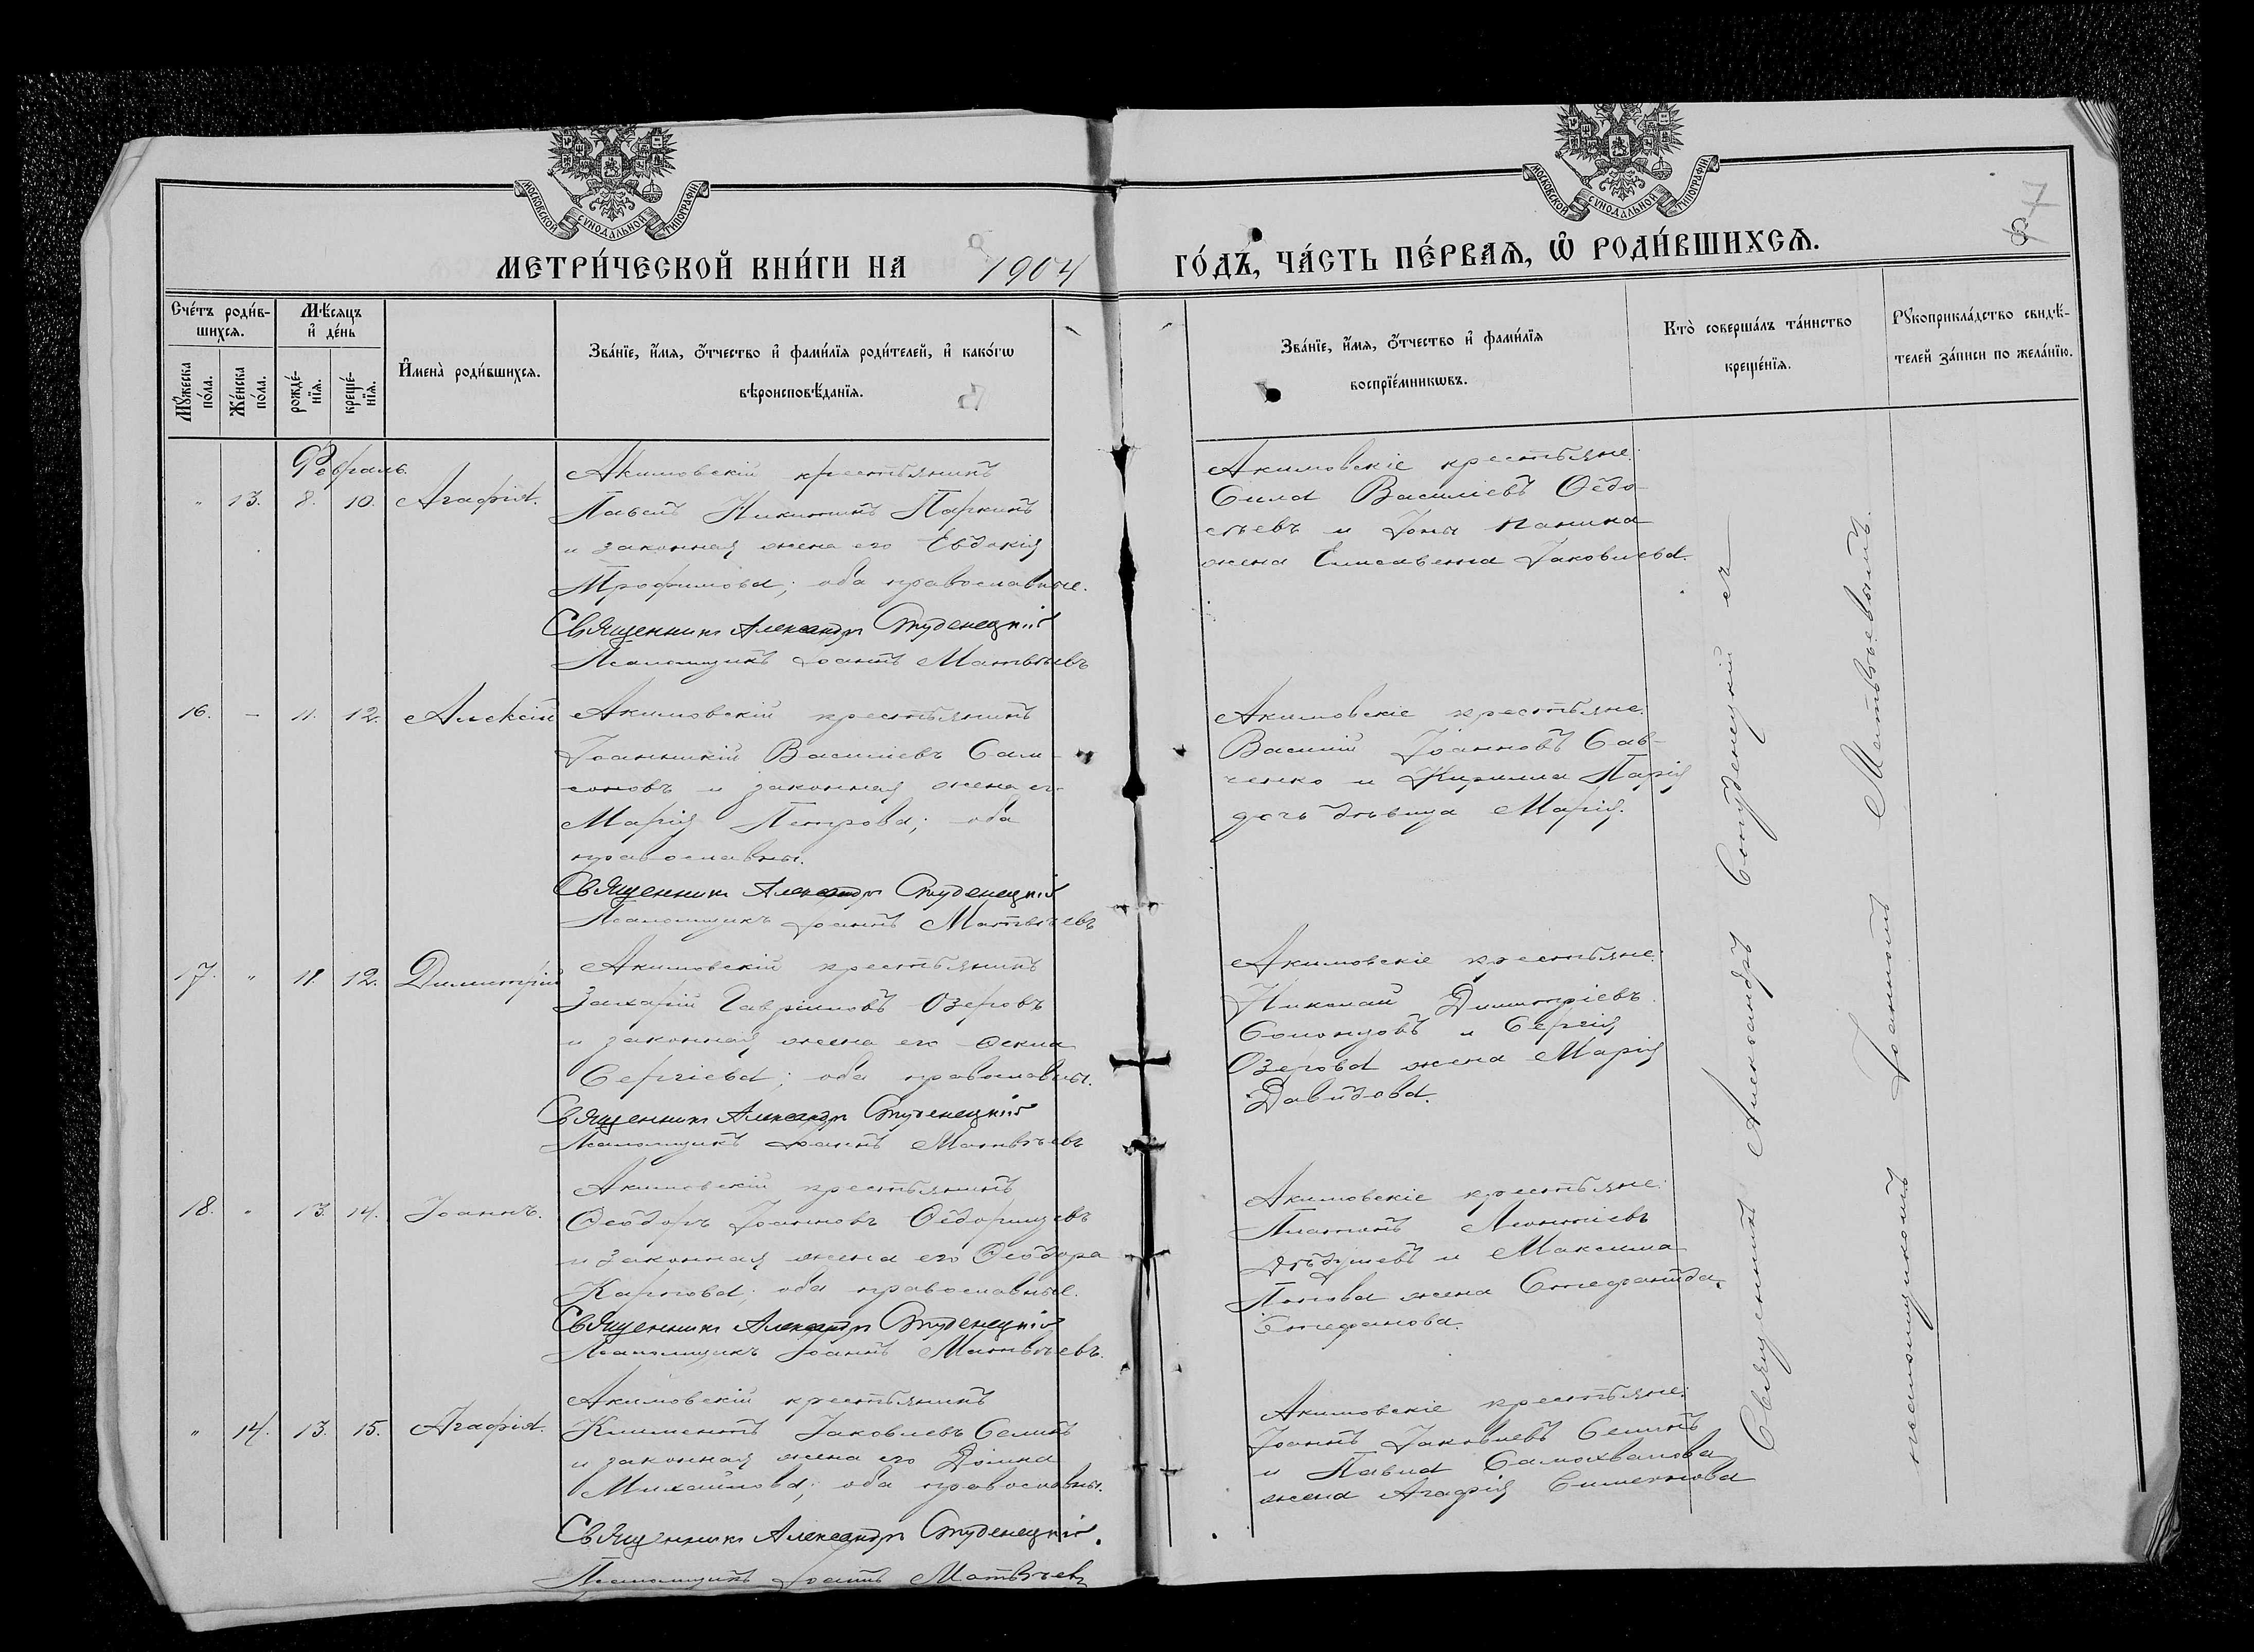 МОСКОВСКОЙ СѴНОДАЛЬНОЙ ТИПОГРАФІИ
МОСКОВСКОЙ СѴНОДАЛЬНОЙ ТИПОГРАФІИ
7
8
МЕТРИ́ЧЕСКОЙ КНИ́ГИ НА 1904
ГО́ДЪ, ЧА́СТЬ ПЕ́РВАѦ, Ѡ҆ РОДИ́ВШИХСѦ.
Сче́тъ роди́в-
шихсѧ.
Мꙋ́жеска по́ла.
Же́нска по́ла.
Мѣ́сѧцъ
и҆ де́нь
рожде́-
нїѧ.
креще́-
нїѧ.
И҆мена̀ роди́вшихсѧ.
Зва́нїе, и҆́мѧ, ѻ҆́тчество и҆ фами́лїѧ роди́телей, и҆ како́гѡ
вѣроисповѣ́данїѧ.
Зва́нїе, и҆́мѧ, ѻ҆́тчество и҆ фами́лїѧ
воспрїе́мникѡвъ.
Кто̀ соверша́лъ та́инство
креще́нїѧ.
Рꙋкоприкла́дство свидѣ́-
телей за́писи по жела́нїю.
Февраль.
" 13. 8. 10. Агафія.
Акимовскій крестьянинъ
Павелъ Никитинъ Паркинъ
и законная жена его Евдокія
Трофимова; оба православные.
Священникъ Александръ Студенецкій
Псаломщикъ Іоаннъ Матвѣевъ
Акимовскіе крестьяне:
Сила Василіевъ Ѳедо-
сѣевъ и Іоны Панина
жена Елисавета Іаковлева.
16. — 11. 12. Алексій
Акимовскій крестьянинъ
Іоанникій Василіевъ Сам-
соновъ и законная жена его
Марія Петрова; оба
православны.
Священникъ Александръ Студенецкій
Псаломщикъ Іоаннъ Матвѣевъ
Акимовскіе крестьяне:
Василій Іоанновъ Сав-
ченко и Кирилла
дочь дѣвица Марія.
17. " 11. 12. Димитрій
Акимовскій крестьянинъ
Захарій Гавріиловъ Озеровъ
и законная жена его Ѳекла
Сергіева; оба православны.
Священникъ Александръ Студенецкій
Псаломщикъ Іоаннъ Матвѣевъ
Акимовскіе крестьяне:
Николай Димитріевъ
Солонцовъ и Сергія
Озерова жена Марія
Давидова.
18. " 13. 14. Іоаннъ.
Акимовскій крестьянинъ
Ѳеодоръ Іоанновъ Ѳедорищевъ
и законная жена его Ѳеодора
Карпова; оба православные.
Священникъ Александръ Студенецкій
Псаломщикъ Іоаннъ Матвѣевъ.
Акимовскіе крестьяне:
Платонъ Леонтіевъ
и Максима
Попова жена Стефанида
Стефанова.
" 14. 13. 15. Агафія.
Акимовскій крестьянинъ
Климентъ Іаковлевъ Селинъ
и законная жена его Домна
Михайлова; оба православны.
Священникъ Александръ Студенецкій.
Псаломщикъ Іоаннъ Матвѣевъ
Акимовскіе крестьяне:
Іоаннъ Іаковлевъ Селинъ
и Павла Самохвалова
жена Агафія Симеонова
Священникъ Александръ Студенецкій съ
псаломщикомъ Іоанномъ Матвѣевымъ.